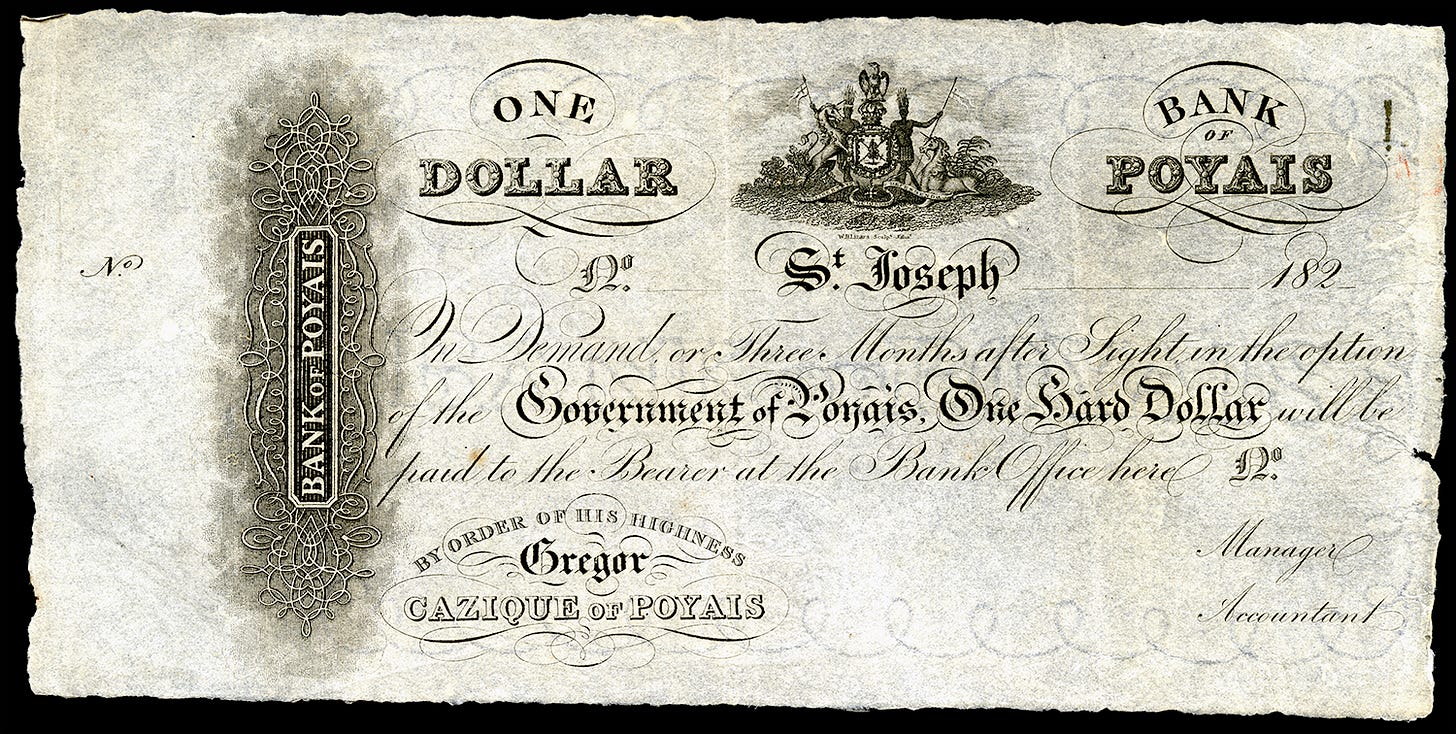 ONE
DOLLAR
BANK
OF
POYAIS
BANK OF POYAIS
Nº
Nº. St. Joseph 182
On Demand, or Three Months after Sight, in the option
of the Government of Poyais, One Hard Dollar will be
paid to the Bearer at the Bank Office here Nº.
BY ORDER OF HIS HIGHNESS
Gregor
CAZIQUE OF POYAIS
Manager
Accountant